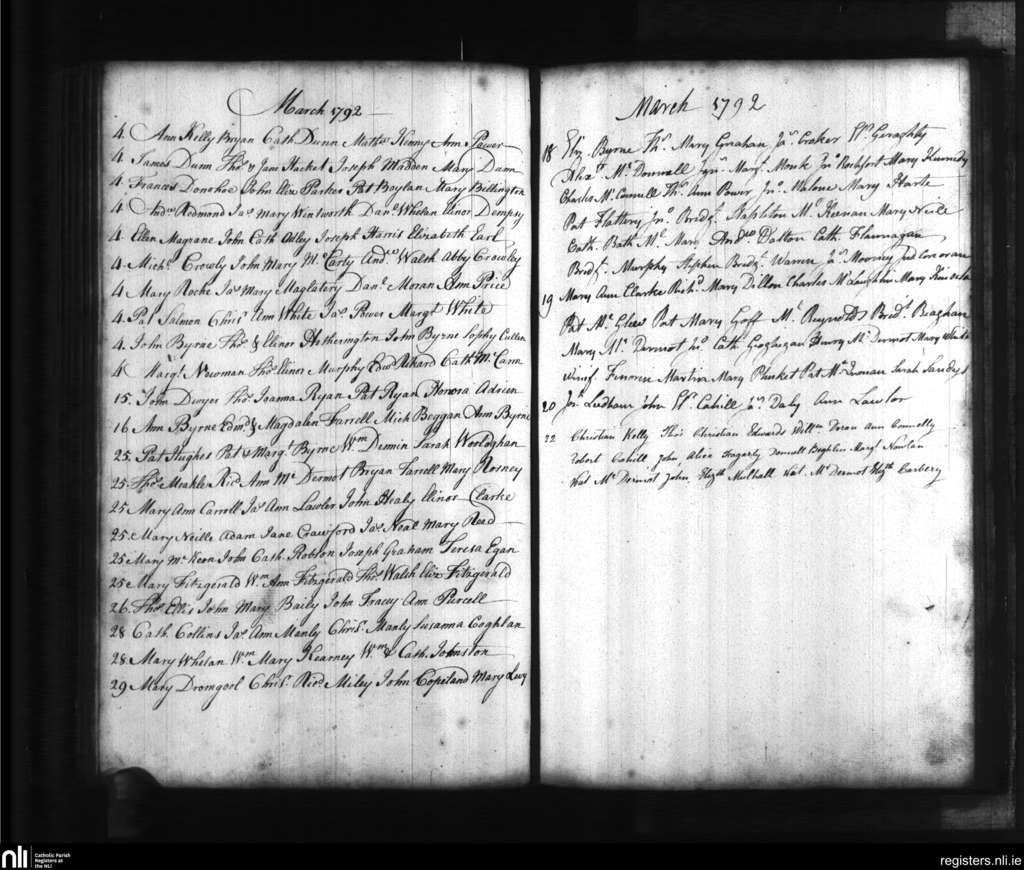 March 1792
4. Ann Kelly Bryan Cath Dunn Mathw Kinny Ann Power
4 James Dunn Thos & Jane Hacket Joseph Madden Mary Dunn
4. Frances Donohoe John Eliz Parker Pat Boylan Mary Billington
4 Andw Redmond Jas Mary Wintworth Danl Whelan Elinor Dempsy
4. Ellen Magrane John Cath Joseph Harris Elizabeth Earl
4. Michl Crowly John Mary McCarty Andw Walsh Abby Crowley
4 Mary Roche Jas Mary Maglatery Danl Moran Ann Price
4. Pat Salmon Chrisr Ann White Jas Power Margt White
4. John Byrne Thos & Elenor Hetherington John Byrne Sophy Cullen
4 Margt Newman Thos Elinor Murphy Edwd Cath McCann
15. John Dwyer Thos Joanna Ryan Pat Ryan Honora Adrien
16 Ann Byrne Edmd & Magdalen Farrell Mich Boggan Ann Byrne
25. Pat Hughes Pat & Margt Byrne Wm Demin Sarah Worloghan
25. Thos Meahler Ricd Ann McDermot Bryan Farrell Mary Rosney
25 Mary Ann Carroll Jas Ann Lawler John Healy Elinor Clarke
25. Mary Neille Adam Jane Crawford Jas Neal Mary Reed
25 Mary McKeon John Cath. Robson Joseph Graham Teresa Egan
25 Mary Fitzgerald Wm Ann Fitzgerald Thos Walsh Eliz Fitzgerald
26. Thos Ellis John Mary Baily John Tracey Ann Purcell
28 Cath. Collins Jas Ann Manly Chrisr Manly Susanna Coghlan
28. Mary Whelan Wm Mary Kearney Wm & Cath. Johnston
29 Mary Dromgorl Chrisr Ricd Miley John Copeland Mary Levy
March 1792
18 Eliz Byrne Thos Mary Grachan Jas Croker Geraghty
Alexr McDonnell Margt Monk Jno Rochfort Mary Kennedy
Charles McConnell Thos Ann Power Jno Malone Mary Harte
Pat Flattery Jno Bridgt Stapleton Ml Keenan Mary Neill
Cath. Bath Ml Mary Andw Dalton Cath. Flannagan
Bridgt Murphy Stephen Bridgt Warren Jas Mooney
19 Mary Ann Clarke Richd Mary Dillon Charles McLaughlin Mary
Pat McGlew Pat Mary Goff Ml Reynolds Bridgt Reaghan
Mary McDermot Jno Cath. Geoghegan Henry McDermot Mary White
Winif. Finoren Martin Mary Plunket Pat Sarah Sandys
20 Jno Ledham John Cahill Jas Daly Ann Lawlor
22 Christian Kelly Thos Christian Edwards Willm Doran Ann Connelly
Robert Cahill John Alice Hagerty Donnell Beghlin Margt Nowlan
Wat McDermot John Elizth Mulhall Wat. McDermot Elizth Carbery
nli Catholic Parish
Registers at
the NLI
registers.nli.ie